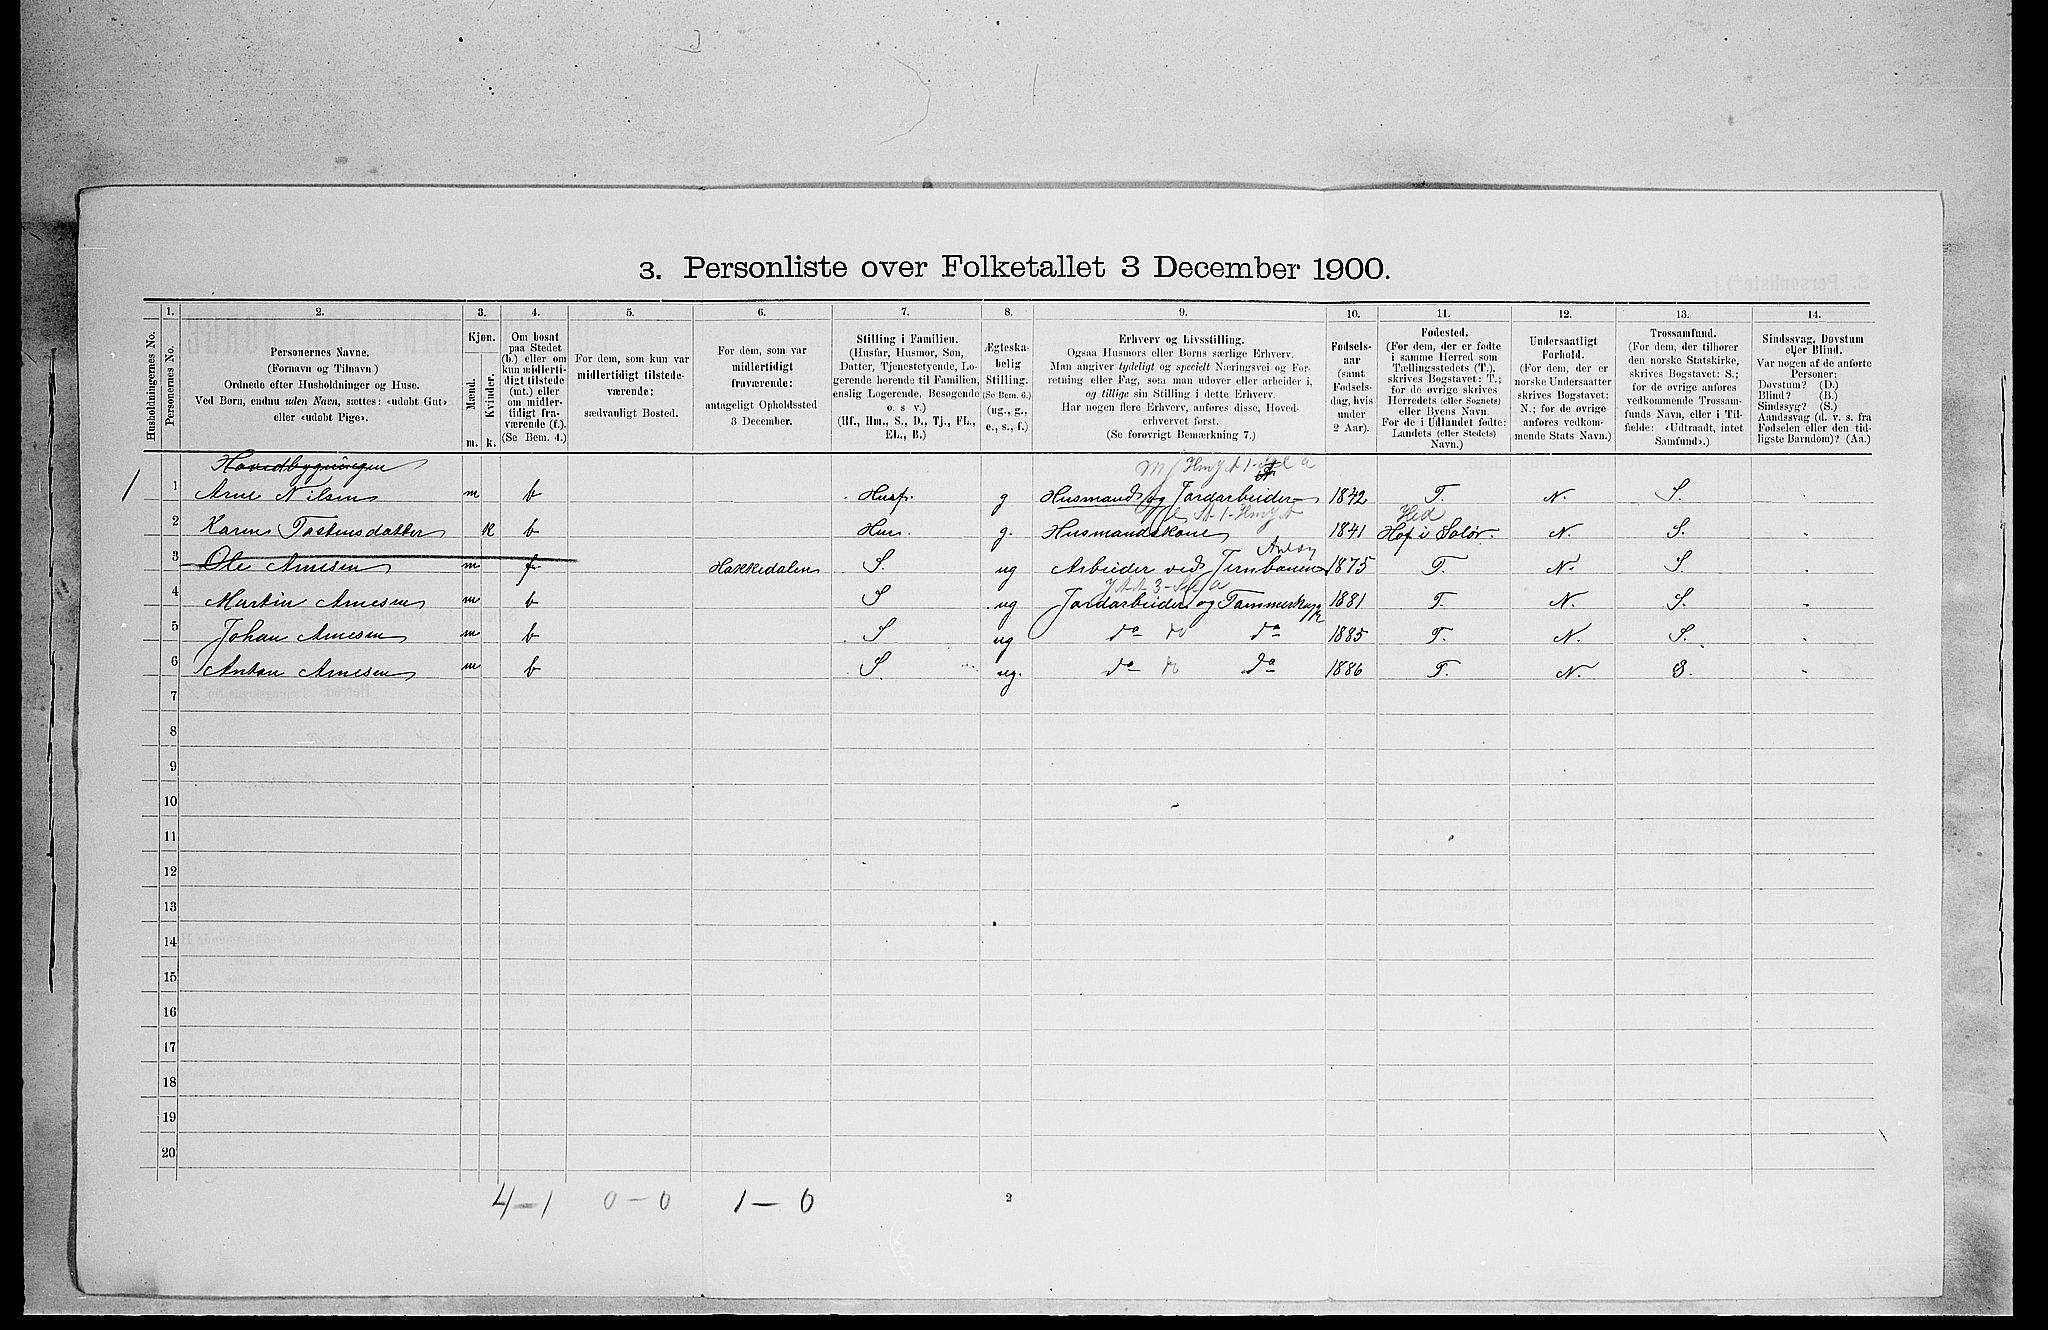 3. Personliste over Folketallet 3 December 1900.
Husholdningernes No.
1.
Personernes No.
2.
Personernes Navne.
(Fornavn og Tilnavn.)
Ordnede efter Husholdninger og Huse.
Ved Børn, endnu uden Navn, sættes: «udøbt Gut»
eller «udøbt Pige».
3.
Kjøn.
Mænd.
Kvinder.
m. k.
4.
Om bosat
paa Stedet
(b.) eller om
kun midlerti-
digt tilstede
(mt.) eller
om midler-
tidigt fra-
værende (f.).
(Se Bem. 4.)
5.
For dem, som kun var
midlertidigt tilstede-
værende:
sædvanligt Bosted.
6.
For dem, som var
midlertidigt
fraværende:
antageligt Opholdssted
3 December.
7.
Stilling i Familien.
(Husfar, Husmor, Søn,
Datter, Tjenestetyende, Lo-
gerende hørende til Familien,
enslig Logerende, Besøgende
o. s v.)
(Hf., Hm., S., D., Tj., FL.,
EL., B.)
8.
Ægteska-
belig
Stilling.
(Se Bem. 6.)
(ug., g.,
e., s., f.)
9.
Erhverv og Livsstilling.
Ogsaa Husmors eller Børns særlige Erhverv.
Man angiver tydeligt og specielt Næringsvei og For-
retning eller Fag, som man udøver eller arbeider i,
og tillige sin Stilling i dette Erhverv.
Har nogen flere Erhverv, anføres disse, Hoved-
erhvervet først.
(Se forøvrigt Bemærkning 7.)
10.
Fødsels-
aar
(samt
Fødsels-
dag, hvis
under
2 Aar).
11.
Fødested.
(For dem, der er fødte
i samme Herred som
Tællingsstedets (T.),
skrives Bogstavet: T.;
for de øvrige skrives
Herredets (eller Sognets)
eller Byens Navn.
For de i Udlandet fødte:
Landets (eller Stedets)
Navn.)
12.
Undersaatligt
Forhold.
(For dem, der er
norske Undersaatter
skrives Bogstavet:
N.; for de øvrige
anføres vedkom-
mende Stats Navn.)
13.
Trossamfund.
(For dem, der tilhører
den norske Statskirke,
skrives Bogstavet: S.;
for de øvrige anføres
vedkommende Trossam-
funds Navn, eller i Til-
fælde: «Udtraadt, intet
Samfund».)
14.
Sindssvag, Døvstum
eller Blind.
Var nogen af de anførte
Personer:
Døvstum? (D.)
Blind? (B.)
Sindssyg? (S.)
Aandssvag (d. v. s. fra
Fødselen eller den tid-
ligste Barndom)? (Aa.)
Hovedbygningen
1 1 Arne Nilsen m b Husf. g Husmand og Jordarbeider 1842 T. N. S.
Hed
2 Karen Tostensdatter k b Hus. g. Husmandskone 1841 Hof i Solør. N. S.
3 Ole Arnesen m f Hakkedalen S. ug Arbeider ved Jernbanen 1875 T. N. S.
4 Martin Arnesen m b S ug Jordarbeider og Tømmerhugger 1881 T. N. S.
5 Johan Arnesen m b S ug do do do 1885 T. N. S.
6 Anton Arnesen m b S. ug. do do do 1886 T. N. S.
7
8
9
10
11
12
13
14
15
16
17
18
19
20
4–1 0–0 1–0
2